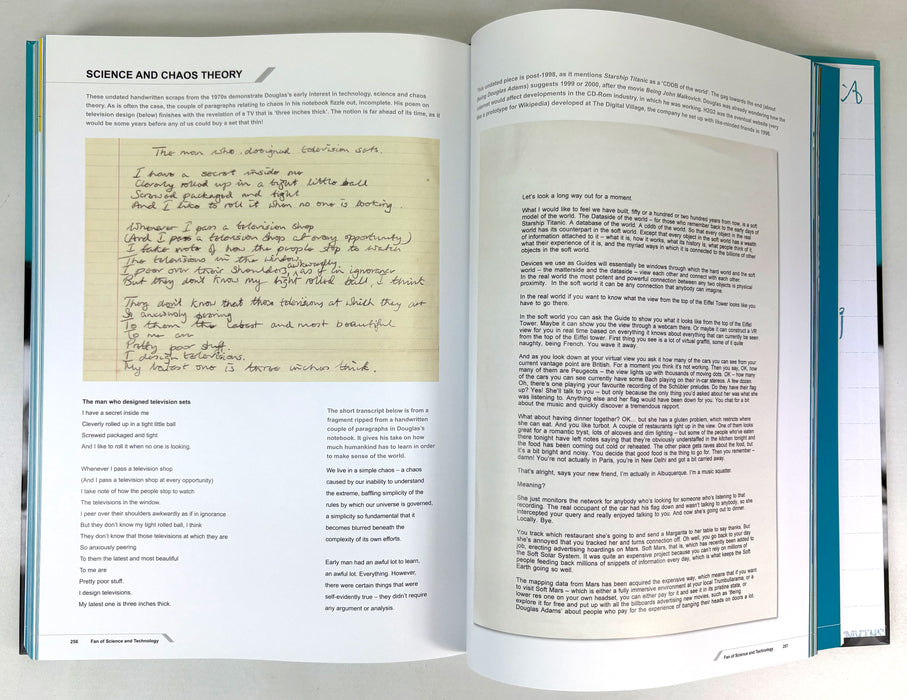 SCIENCE AND CHAOS THEORY
These undated handwritten scraps from the 1970s demonstrate Douglas's early interest in technology, science and chaos
theory. As is often the case, the couple of paragraphs relating to chaos in his notebook fizzle out, incomplete. His poem on
television design (below) finishes with the revelation of a TV that is 'three inches thick'. The notion is far ahead of its time, as it
would be some years before any of us could buy a set that thin!
The man who designed television sets.
I have a secret inside me
Cleverly rolled up in a tight little ball
Screwed packaged and tight
And I like to roll it when no one is looking.
Whenever I pass a television shop
(And I pass a television shop at every opportunity)
I take note of how the people stop to watch
The televisions in the window.
I peer over their shoulders awkwardly as if in ignorance
But they don't know my tight rolled ball, I think
They don't know that those televisions at which they are
So anxiously peering
To them the latest and most beautiful
To me are
Pretty poor stuff.
I design televisions.
My latest one is three inches thick.
The man who designed television sets
I have a secret inside me
Cleverly rolled up in a tight little ball
Screwed packaged and tight
And I like to roll it when no one is looking.
Whenever I pass a television shop
(And I pass a television shop at every opportunity)
I take note of how the people stop to watch
The televisions in the window.
I peer over their shoulders awkwardly as if in ignorance
But they don't know my tight rolled ball, I think
They don't know that those televisions at which they are
So anxiously peering
To them the latest and most beautiful
To me are
Pretty poor stuff.
I design televisions.
My latest one is three inches thick.
The short transcript below is from a
fragment ripped from a handwritten
couple of paragraphs in Douglas's
notebook. It gives his take on how
much humankind has to learn in order
to make sense of the world.
We live in a simple chaos – a chaos
caused by our inability to understand
the extreme, baffling simplicity of the
rules by which our universe is governed,
a simplicity so fundamental that it
becomes blurred beneath the
complexity of its own efforts.
Early man had an awful lot to learn,
an awful lot. Everything. However,
there were certain things that were
self-evidently true – they didn't require
any argument or analysis.
256 Fan of Science and Technology
This undated piece is post-1998, as it mentions Starship Titanic as a 'CDDB of the world'. The gag towards the end (about
Being Douglas Adams) suggests 1999 or 2000, after the movie Being John Malkovich. Douglas was already wondering how the
internet would affect developments in the CD-Rom industry, in which he was working. H2G2 was the eventual website (very
like a prototype for Wikipedia) developed at The Digital Village, the company he set up with like-minded friends in 1996.
Let's look a long way out for a moment.
What I would like to feel we have built, fifty or a hundred or two hundred years from now, is a soft
model of the world. The Dataside of the world – for those who remember back to the early days of
Starship Titanic. A database of the world. A cddb of the world. So that every object in the real
world has its counterpart in the soft world. Except that every object in the soft world has a wealth
of information attached to it – what it is, how it works, what its history is, what people think of it,
what their experience of it is, and the myriad ways in which it is connected to the billions of other
objects in the soft world.
Devices we use as Guides will essentially be windows through which the hard world and the soft
world – the matterside and the dataside – view each other and connect with each other.
In the real world the most potent and powerful connection between any two objects is physical
proximity. In the soft world it can be any connection that anybody can imagine.
In the real world if you want to know what the view from the top of the Eiffel Tower looks like you
have to go there.
In the soft world you can ask the Guide to show you what it looks like from the top of the Eiffel
Tower. Maybe it can show you the view through a webcam there. Or maybe it can construct a VR
view for you in real time based on everything it knows about everything that can currently be seen
from the top of the Eiffel tower. First thing you see is a lot of virtual graffiti, some of it quite
naughty, being French. You wave it away.
And as you look down at your virtual view you ask it how many of the cars you can see from your
current vantage point are British. For a moment you think it's not working. Then you say, OK, how
many of them are Peugeots – the view lights up with thousands of moving dots. OK – how many
of the cars you can see currently have some Bach playing on their in-car stereos. A few dozen.
Oh, there's one playing your favourite recording of the Schübler preludes. Do they have their flag
up? Yes! She'll talk to you – but only because the only thing you'd asked about her was what she
was listening to. Anything else and her flag would have been down for you. You chat for a bit
about the music and quickly discover a tremendous rapport.
What about having dinner together? OK... but she has a gluten problem, which restricts where
she can eat. And you like turbot. A couple of restaurants light up in the view. One of them looks
great for a romantic tryst, lots of alcoves and dim lighting – but some of the people who've eaten
there tonight have left notes saying that they're obviously understaffed in the kitchen tonight and
the food has been coming out cold or reheated. The other place gets raves about the food, but
it's a bit bright and noisy. You decide that good food is the thing to go for. Then you remember –
damn! You're not actually in Paris, you're in New Delhi and got a bit carried away.
That's alright, says your new friend, I'm actually in Albuquerque. I'm a music squatter.
Meaning?
She just monitors the network for anybody who's looking for someone who's listening to that
recording. The real occupant of the car had his flag down and wasn't talking to anybody, so she
intercepted your query and really enjoyed talking to you. And now she's going out to dinner.
Locally. Bye.
You track which restaurant she's going to and send a Margarita to her table to say thanks. But
she's annoyed that you tracked her and turns connection off. Oh well, you go back to your day
job, erecting advertising hoardings on Mars. Soft Mars, that is, which has recently been added to
the Soft Solar System. It was quite an expensive project because you can't rely on millions of
people feeding back millions of snippets of information every day, which is what keeps the Soft
Earth going so well.
The mapping data from Mars has been acquired the expensive way, which means that if you want
to visit Soft Mars – which is either a fully immersive environment at your local Trumbularama, or a
lower res one on your own headset, you can either pay for it and see it in its pristine state, or
explore it for free and put up with all the billboards advertising new movies, such as 'Being
Douglas Adams' about people who pay for the experience of banging their heads on doors a lot.
Fan of Science and Technology 257